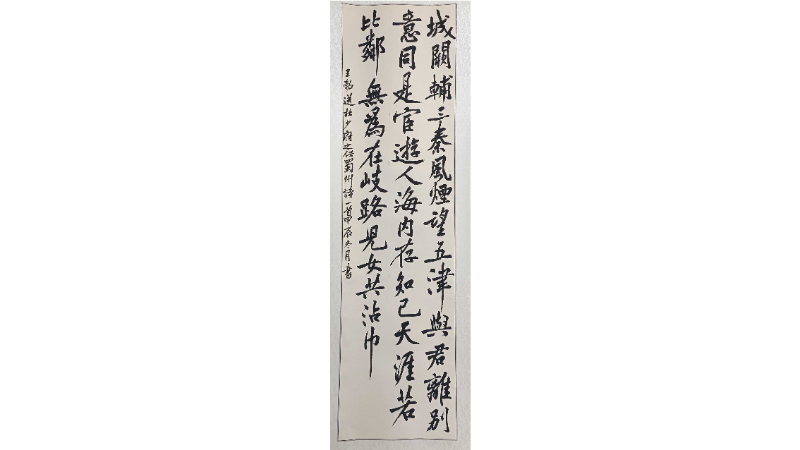 城闕輔三秦風煙望五津與君離別
意同是宦遊人海內存知己天涯若
比鄰無為在歧路兒女共沾巾
王勃送杜少府之任蜀州詩一首甲辰冬月書